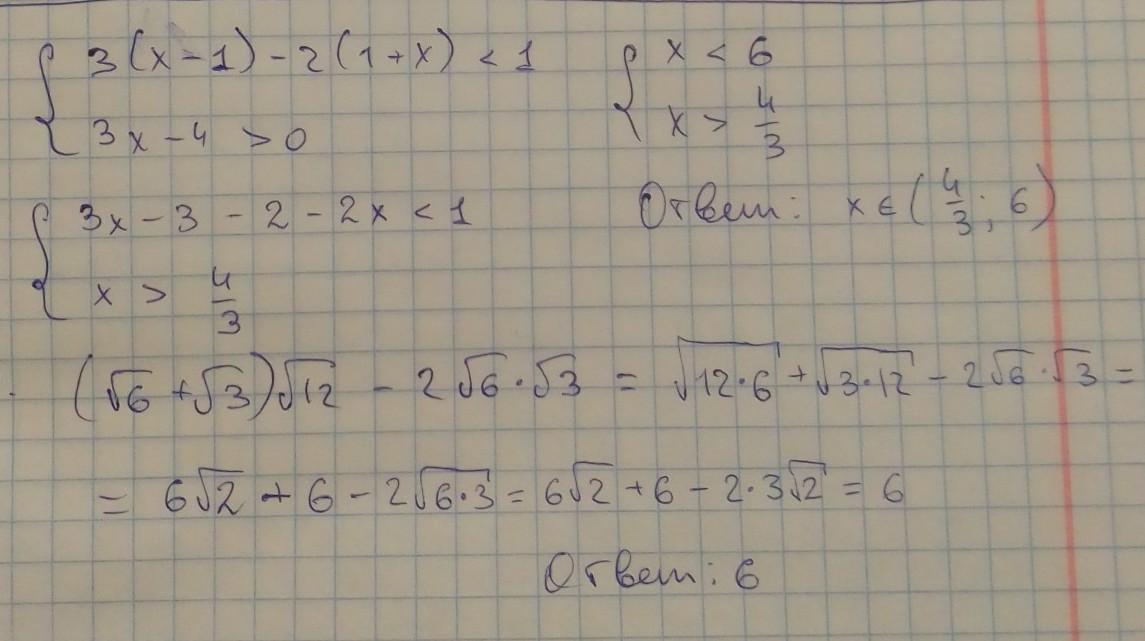 { 3(x-1) - 2(1+x) < 1
3x - 4 > 0
{ 3x - 3 - 2 - 2x < 1
x > 4/3
{ x < 6
x > 4/3
Ответ: x ∈ (4/3; 6)
(√6 + √3)√12 - 2√6·√3 = √12·6 + √3·12 - 2√6·√3 =
= 6√2 + 6 - 2√6·3 = 6√2 + 6 - 2·3√2 = 6
Ответ: 6